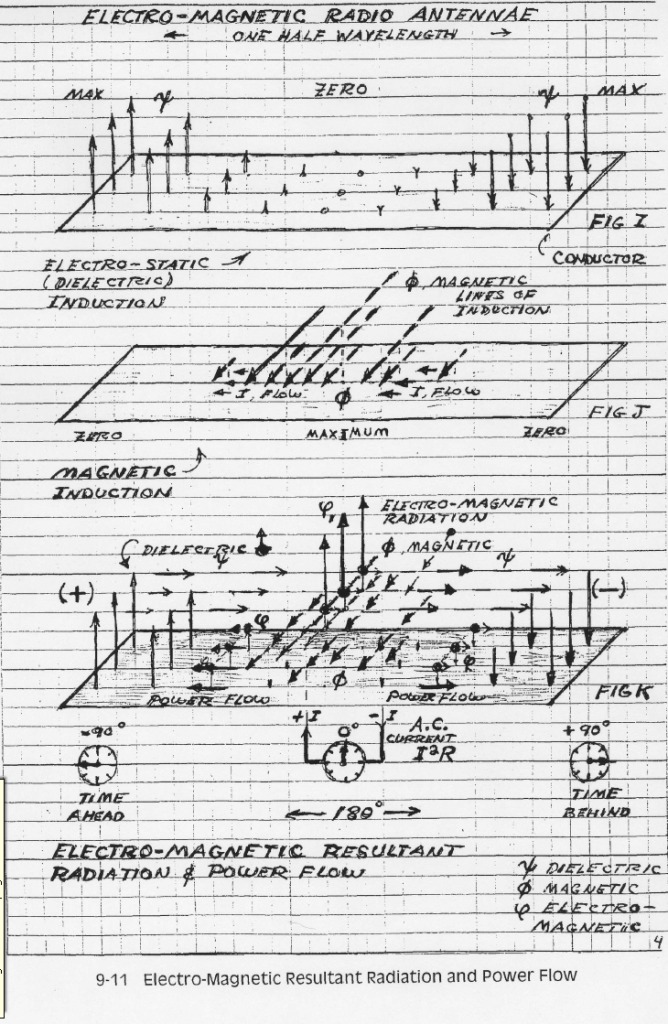 ELECTRO-MAGNETIC RADIO ANTENNAE
← ONE HALF WAVELENGTH →
MAX ψ ZERO ψ MAX
FIG I
CONDUCTOR
ELECTRO-STATIC
(DIELECTRIC)
INDUCTION
Φ, MAGNETIC
LINES OF
INDUCTION
← I, FLOW Φ ← I, FLOW
FIG J
ZERO MAXIMUM ZERO
MAGNETIC
INDUCTION
φ, ELECTRO-MAGNETIC
RADIATION
DIELECTRIC
ψ Φ, MAGNETIC ψ
(+) (-)
φ φ
Φ
POWER FLOW POWER FLOW
FIG K
-90° +I 0° -I A.C. +90°
CURRENT
I²R
TIME TIME
AHEAD ← 180° → BEHIND
ELECTRO-MAGNETIC RESULTANT
RADIATION & POWER FLOW
ψ DIELECTRIC
Φ MAGNETIC
φ ELECTRO-
MAGNETIC
4
9-11 Electro-Magnetic Resultant Radiation and Power Flow